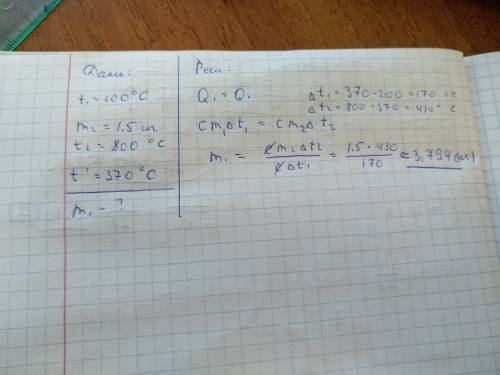 Дано:
t₁ = 200°C
m₂ = 1.5 кг
t₂ = 800 °C
t' = 370 °C
m₁ - ?
Реш:
Q₁ = Q₁
Δt₁ = 370-200 = 170 °C
Δt₂ = 800-370 = 430° C
cm₁Δt₁ = cm₂Δt₂
m₁ = cm₂Δt₂ / cΔt₁ = 1.5·430 / 170 ≈ 3,794 (кг)